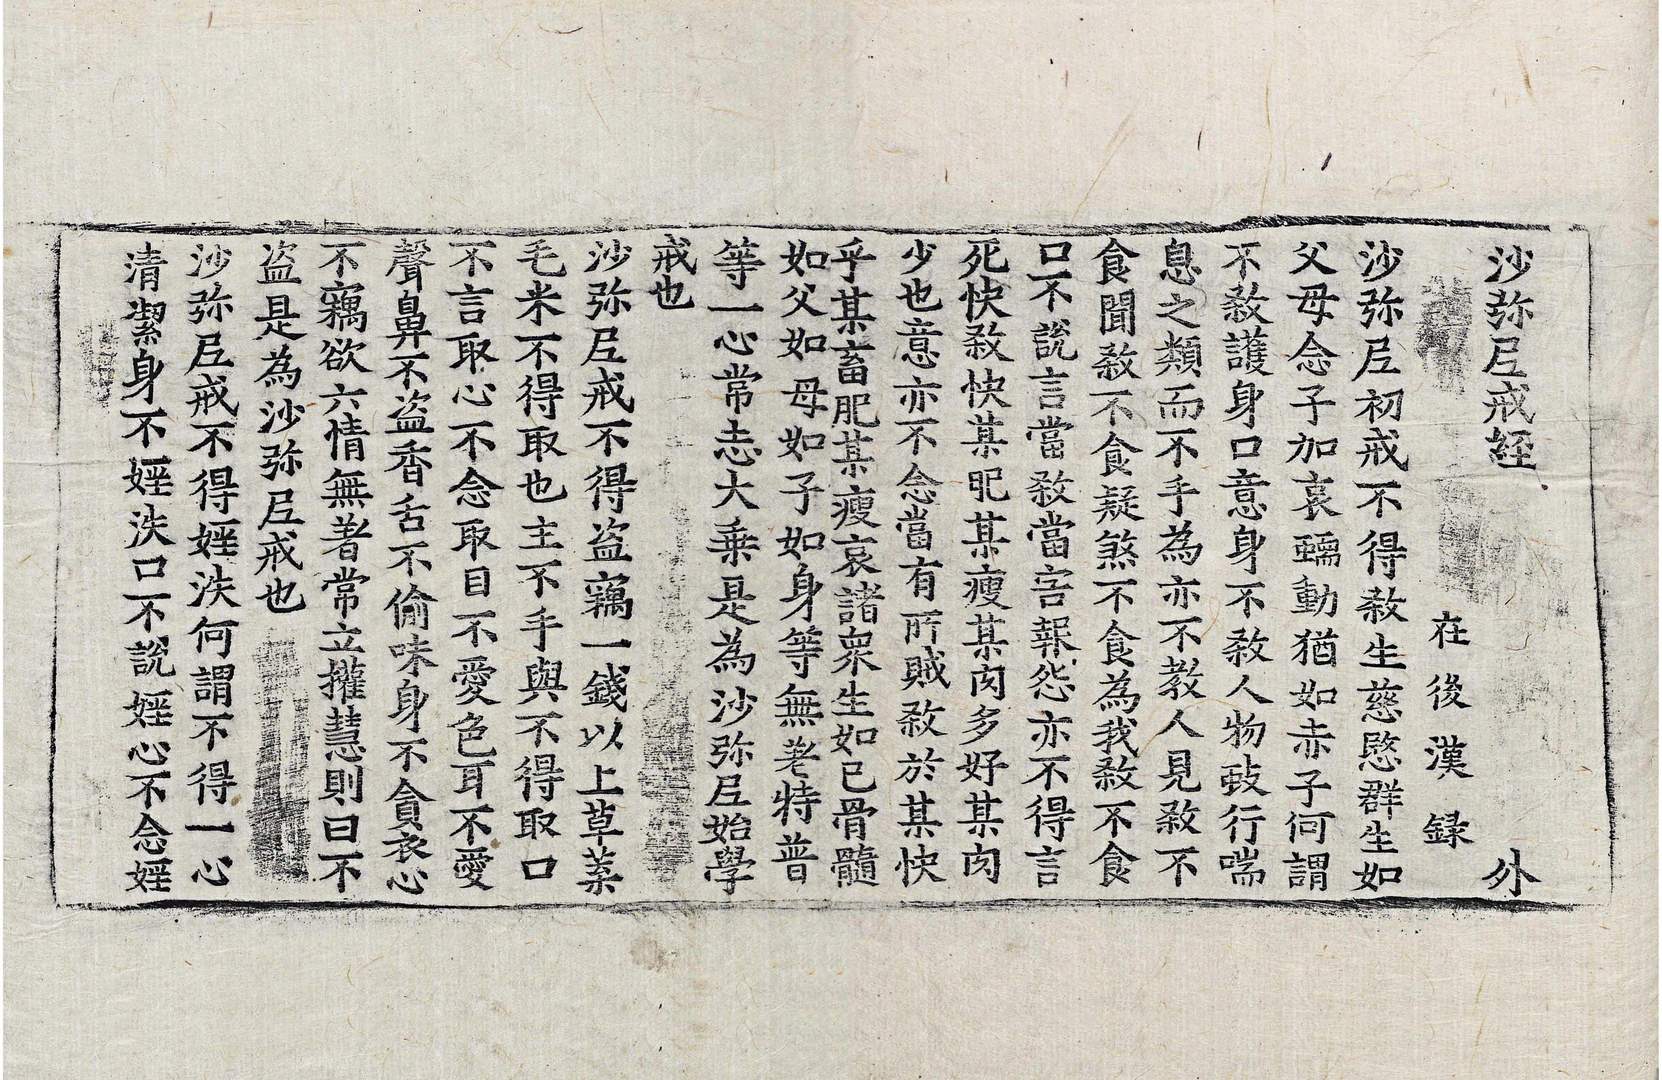 沙弥尼戒経 外
在後漢録
沙弥尼初戒不得煞生慈愍群生如
父母念子加哀蠕動猶如赤子何謂
不煞護身口意身不煞人物蚑行喘
息之類而不手為亦不教人見煞不
食聞煞不食疑煞不食為我煞不食
口不說言當煞當害報怨亦不得言
死快煞快某肥某瘦某肉多好某肉
少也意亦不念當有所賊煞於某快
乎某畜肥某瘦哀諸衆生如己骨髓
如父如母如子如身等無差特普
等一心常志大乗是為沙弥尼始學
戒也
沙弥尼戒不得盗竊一錢以上草菜
毛米不得取也主不手與不得取口
不言取心不念取目不愛色耳不愛
聲鼻不盗香舌不偷味身不貪衣心
不竊欲六情無著常立權慧則曰不
盗是為沙弥尼戒也
沙弥尼戒不得婬泆何謂不得一心
清潔身不婬泆口不說婬心不念婬